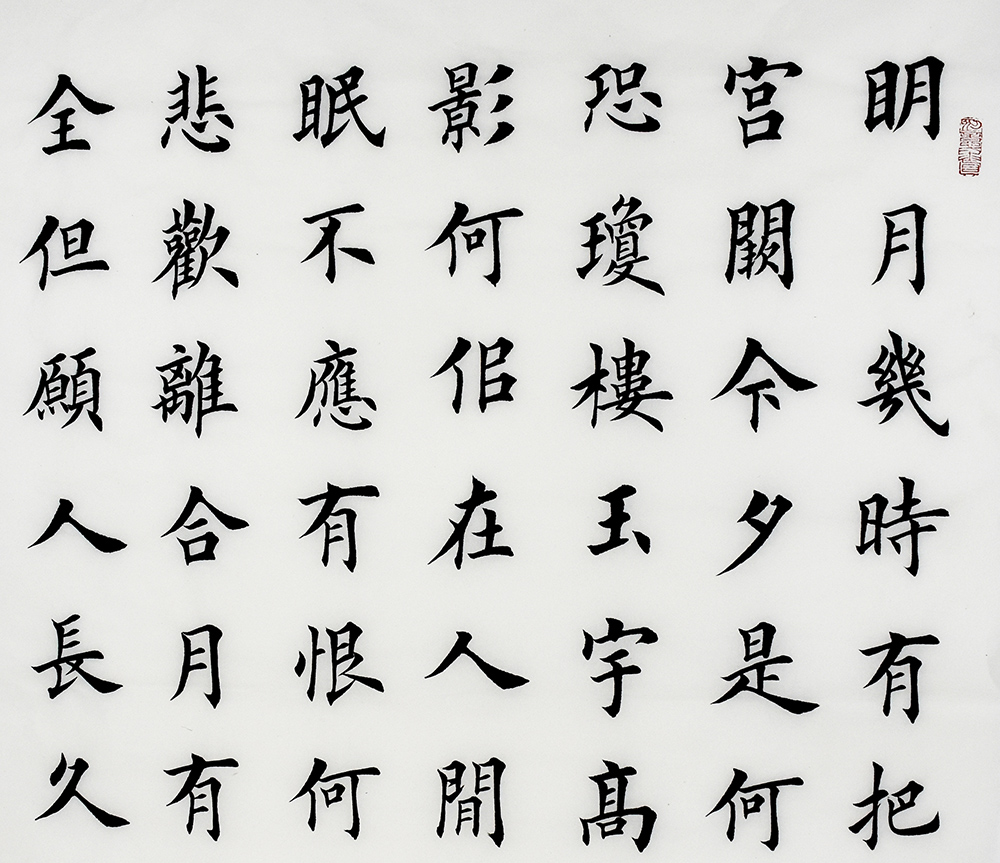 明月幾時有把
宮闕今夕是何
恐瓊樓玉宇高
影何侣在人間
眠不應有恨何
悲歡離合月有
全但願人長久